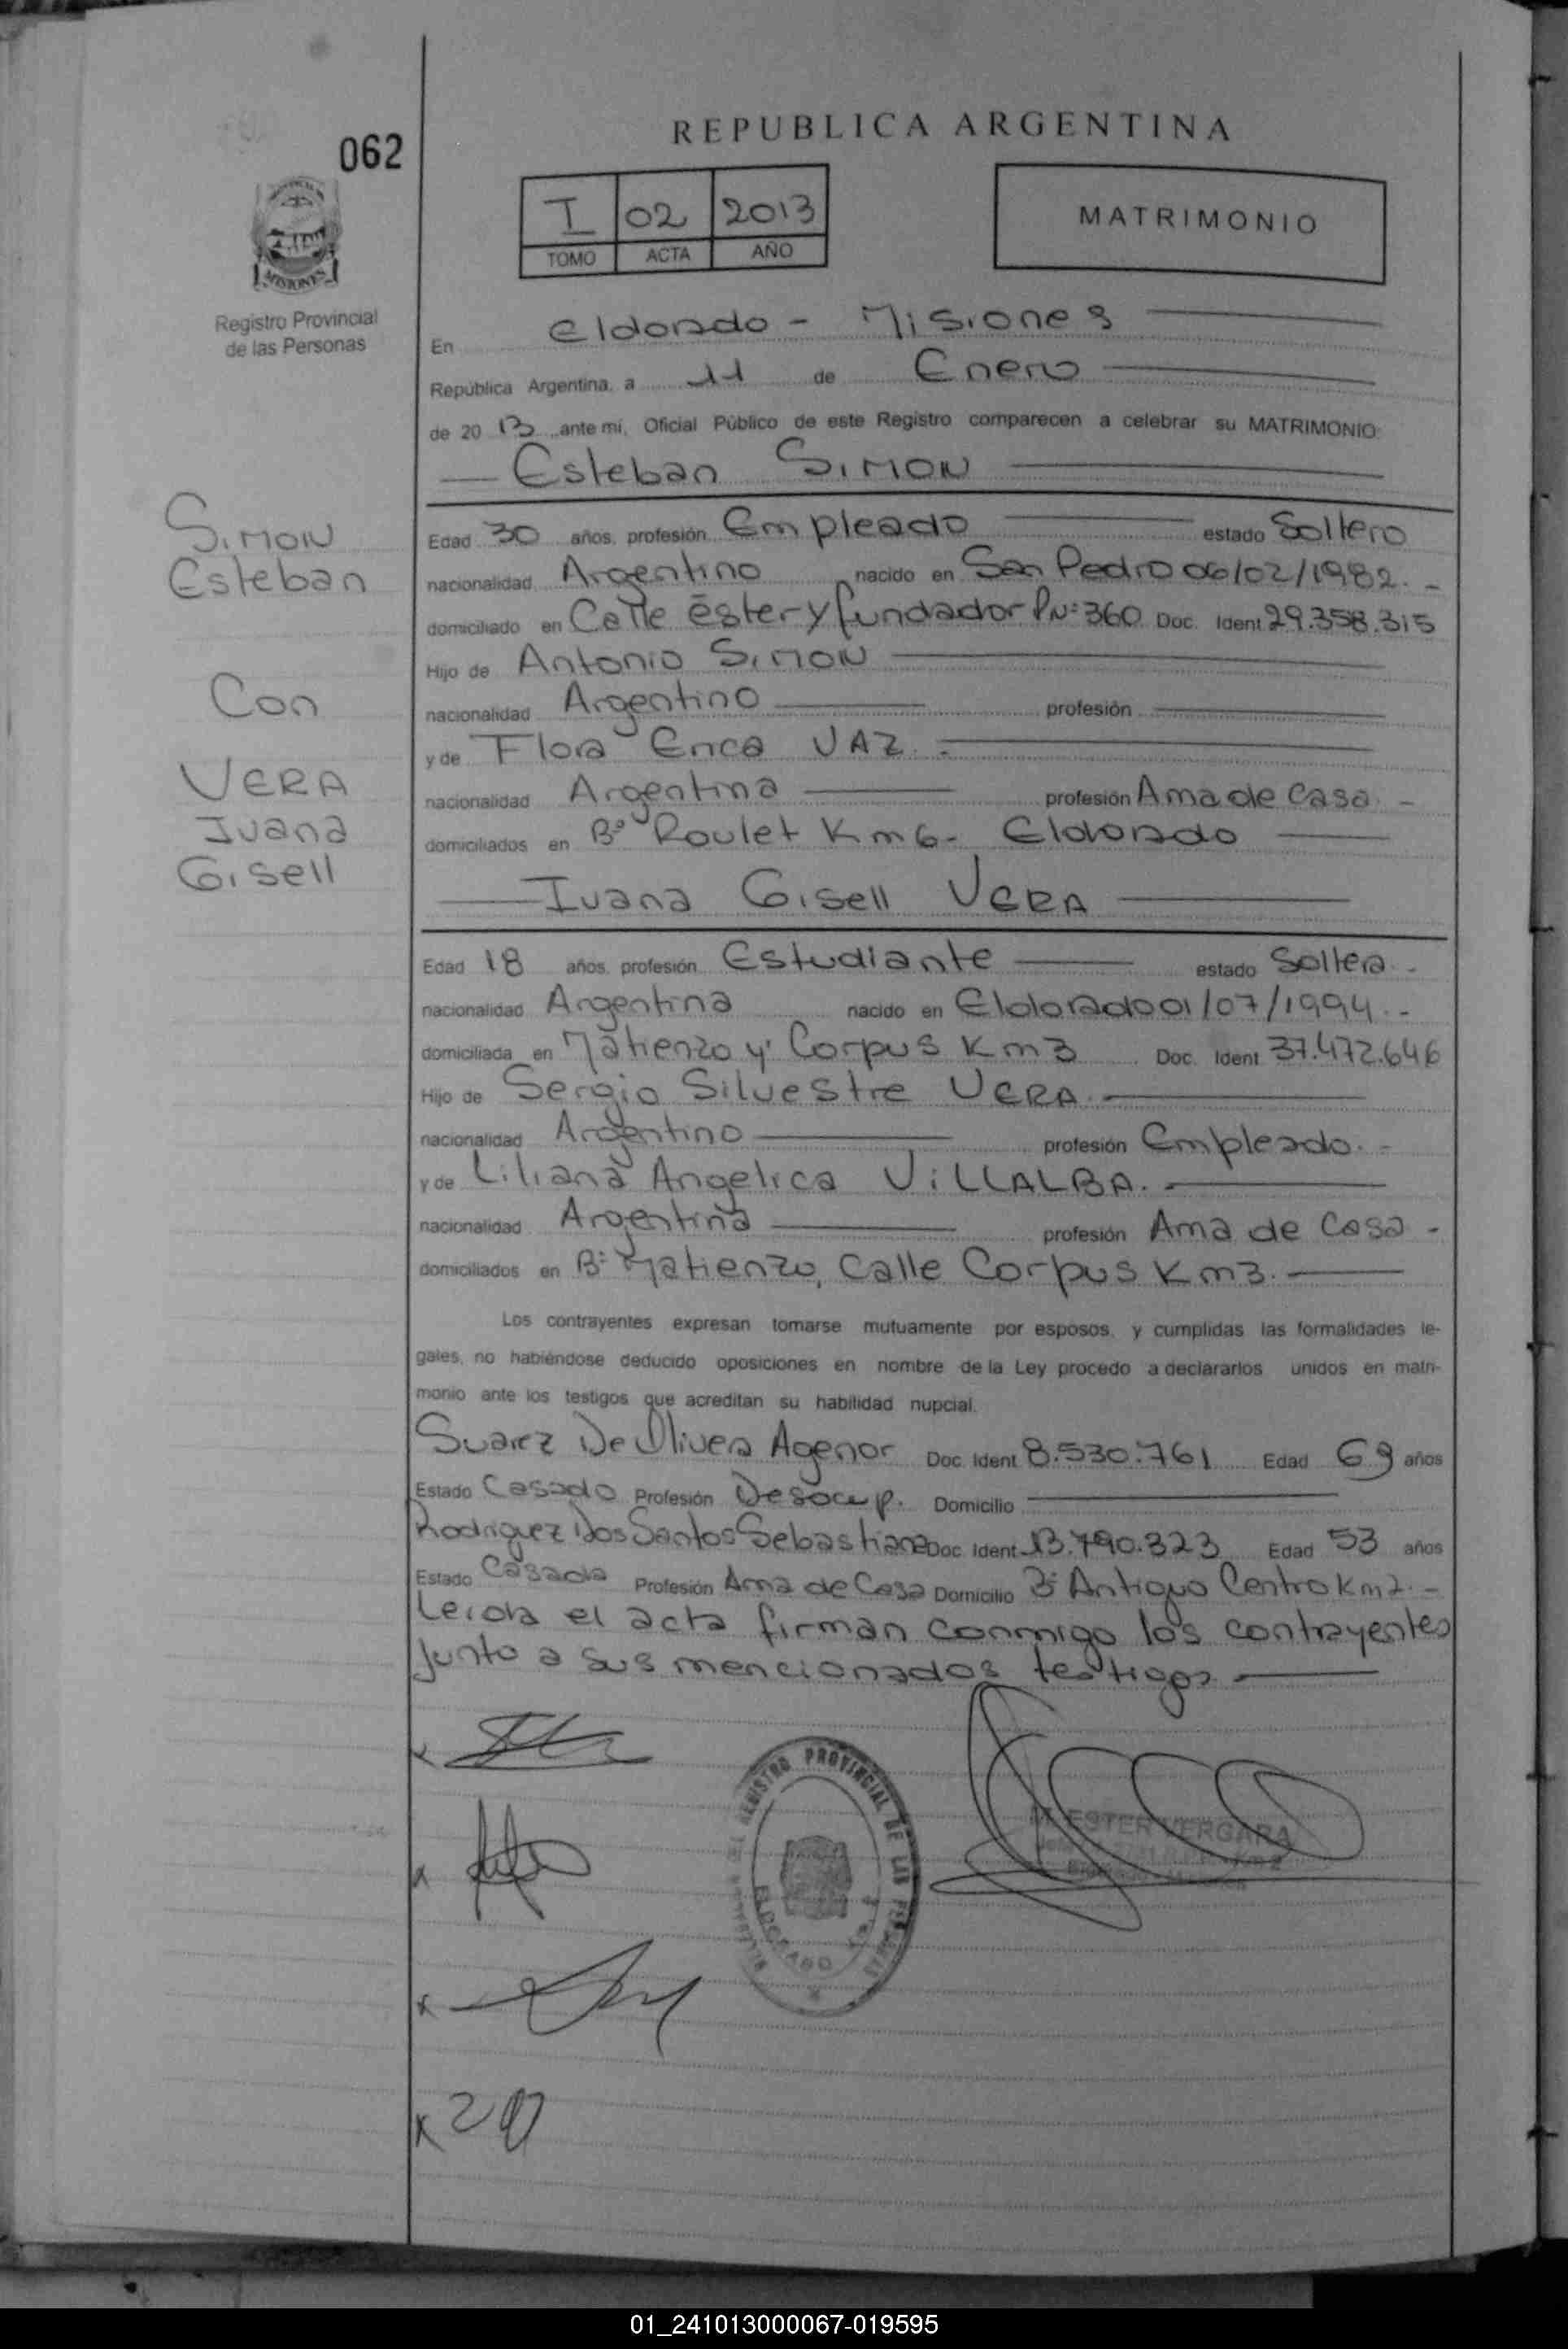 062
REPUBLICA ARGENTINA
I 02 2013
TOMO ACTA AÑO
MATRIMONIO
MISIONES
Registro Provincial
de las Personas
En Eldorado - Misiones
República Argentina, a 11 de Enero
de 2013 ante mi, Oficial Público de este Registro comparecen a celebrar su MATRIMONIO:
Esteban SIMON
SIMON
Esteban
Con
VERA
Ivana
Gisell
Edad 30 años, profesión Empleado estado Soltero
nacionalidad Argentino nacido en San Pedro 06/02/1982.-
domiciliado en Calle éster y fundador PN: 360 Doc. Ident 29.358.315
Hijo de Antonio SIMON
nacionalidad Argentino profesión
y de Flora Erica VAZ.-
nacionalidad Argentina profesión Ama de Casa -
domiciliados en Bº Roulet Km 6 - Eldorado
Ivana Gisell VERA
Edad 18 años, profesión Estudiante estado Soltera.-
nacionalidad Argentina nacido en Eldorado 01/07/1994.-
domiciliada en Matienzo y Corpus Km 3 Doc. Ident 37.472.646
Hijo de Sergio Silvestre VERA.-
nacionalidad Argentino profesión Empleado.-
y de Liliana Angelica ViLLALBA.-
nacionalidad Argentina profesión Ama de Casa -
domiciliados en Bº Matienzo, Calle Corpus Km 3.
Los contrayentes expresan tomarse mutuamente por esposos, y cumplidas las formalidades le-
gales, no habiéndose deducido oposiciones en nombre de la Ley procedo a declararlos unidos en matri-
monio ante los testigos que acreditan su habilidad nupcial.
Suarez De Olivera Agenor Doc. Ident 8.530.761 Edad 69 años
Estado Casado Profesión Desocup. Domicilio
Rodriguez Dos Santos Sebastiana Doc. Ident 13.790.323 Edad 53 años
Estado Casada Profesión Ama de Casa Domicilio Bº Antiguo Centro Km 2.-
Leida el acta firman conmigo los contrayentes
junto a sus mencionados testigos
REGISTRO PROVINCIAL DE LAS PERSONAS
ELDORADO
ESTER VERGARA
01_241013000067-019595